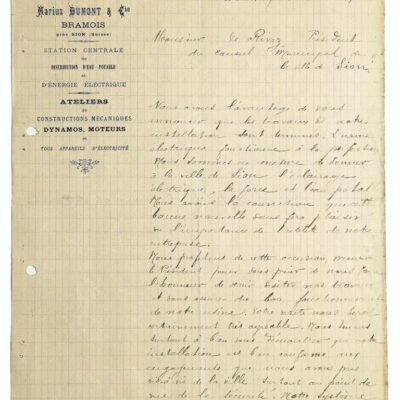 Marius DUMONT & Cie
BRAMOIS
près SION (Suisse)
STATION CENTRALE
DE
DISTRIBUTION D'EAU POTABLE
ET
D'ÉNERGIE ÉLECTRIQUE
ATELIERS
DE
CONSTRUCTIONS MÉCANIQUES
DYNAMOS, MOTEURS
ET
TOUS APPAREILS D'ÉLECTRICITÉ
Monsieur de Rivaz Président
du Conseil Municipal de
la ville de Sion
Nous avons l'avantage de vous
annoncer que les travaux de notre
installation sont terminés. L'usine
électrique fonctionne à la perfection
Nous sommes en mesure de donner
à la ville de Sion l'éclairage
électrique, la force et l'eau potable
Nous avons la conviction que cette
bonne nouvelle vous fera plaisir
vu l'importance de l'utilité de notre
entreprise.
Nous profitons de cette occasion Monsieur
le Président pour vous prier de nous faire
l'honneur de venir visiter nos travaux
et vous assurer du bon fonctionnement
de notre usine. Votre visite nous sera
certainement très agréable. Nous tenons
surtout à bien vous démontrer que notre
installation est bien conforme aux
engagements que nous avons pris
vis à vis de la ville surtout au point de
vue de la sécurité. Notre système